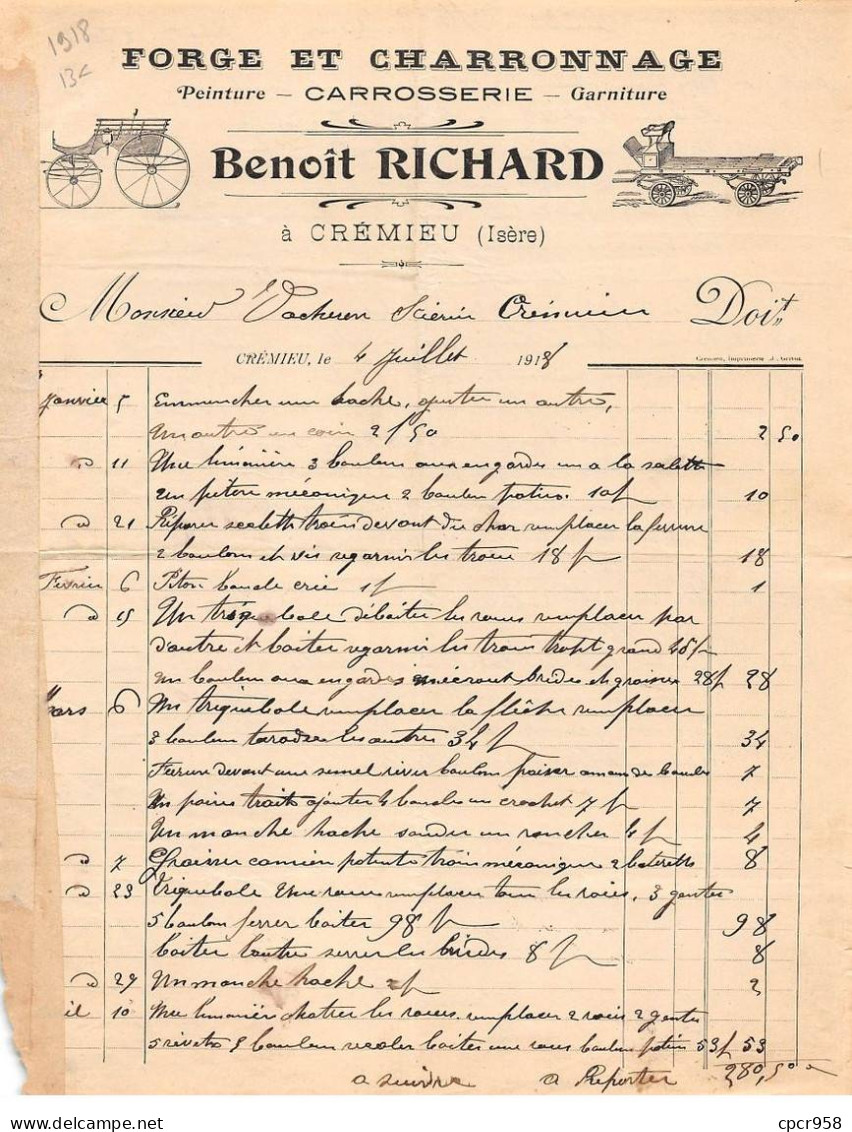 1918
13<
FORGE ET CHARRONNAGE
Peinture — CARROSSERIE — Garniture
Benoît RICHARD
à CRÉMIEU (Isère)
Monsieur Vacheron Scierie Crémieu Doit
CRÉMIEU, le 4 Juillet 1918
Janvier 5 Emmancher une hache, ajuster un autre,
un autre un coin 2f50 2 50
d 11 Une limonière 3 boulons aux engardes un a la
un piton mécanique 2 boulon 10f 10
d 21 Réparer train devant du char remplacer la ferrure
2 boulons et vis regarnir les trous 18f 18
Février 6 Piton boucle 1f 1
d 15 Un triquebale déboiter les roues remplacer par
d'autre et boiter regarnir les trous tropt grand
un boulon aux engardes écrout brides et graisser 28f 28
Mars 6 Un triqueballe remplacer la flèche remplacer
3 boulon les autres 34f 34
Ferrure devant une semel river boulon 7
Un paires traits ajouter 4 boucles un crochet 7f 7
Un manche hache souder un rancher 4f 4
d 7 Graisser camion train mécanique 2 8
d 23 Triquebale Une roue remplacer tous les raies, 3 gentes
5 boulon ferrer boiter 98f 98
boiter l'autre serrer les brides 8f 8
d 29 Un manche hache 2f 2
il 10 Une limonière les roues remplacer 2 raies 2 gentes
5 rivets 9 boulon boiter une roue boulon 53f 53
a suivre a Reporter 280,50
cpcr958